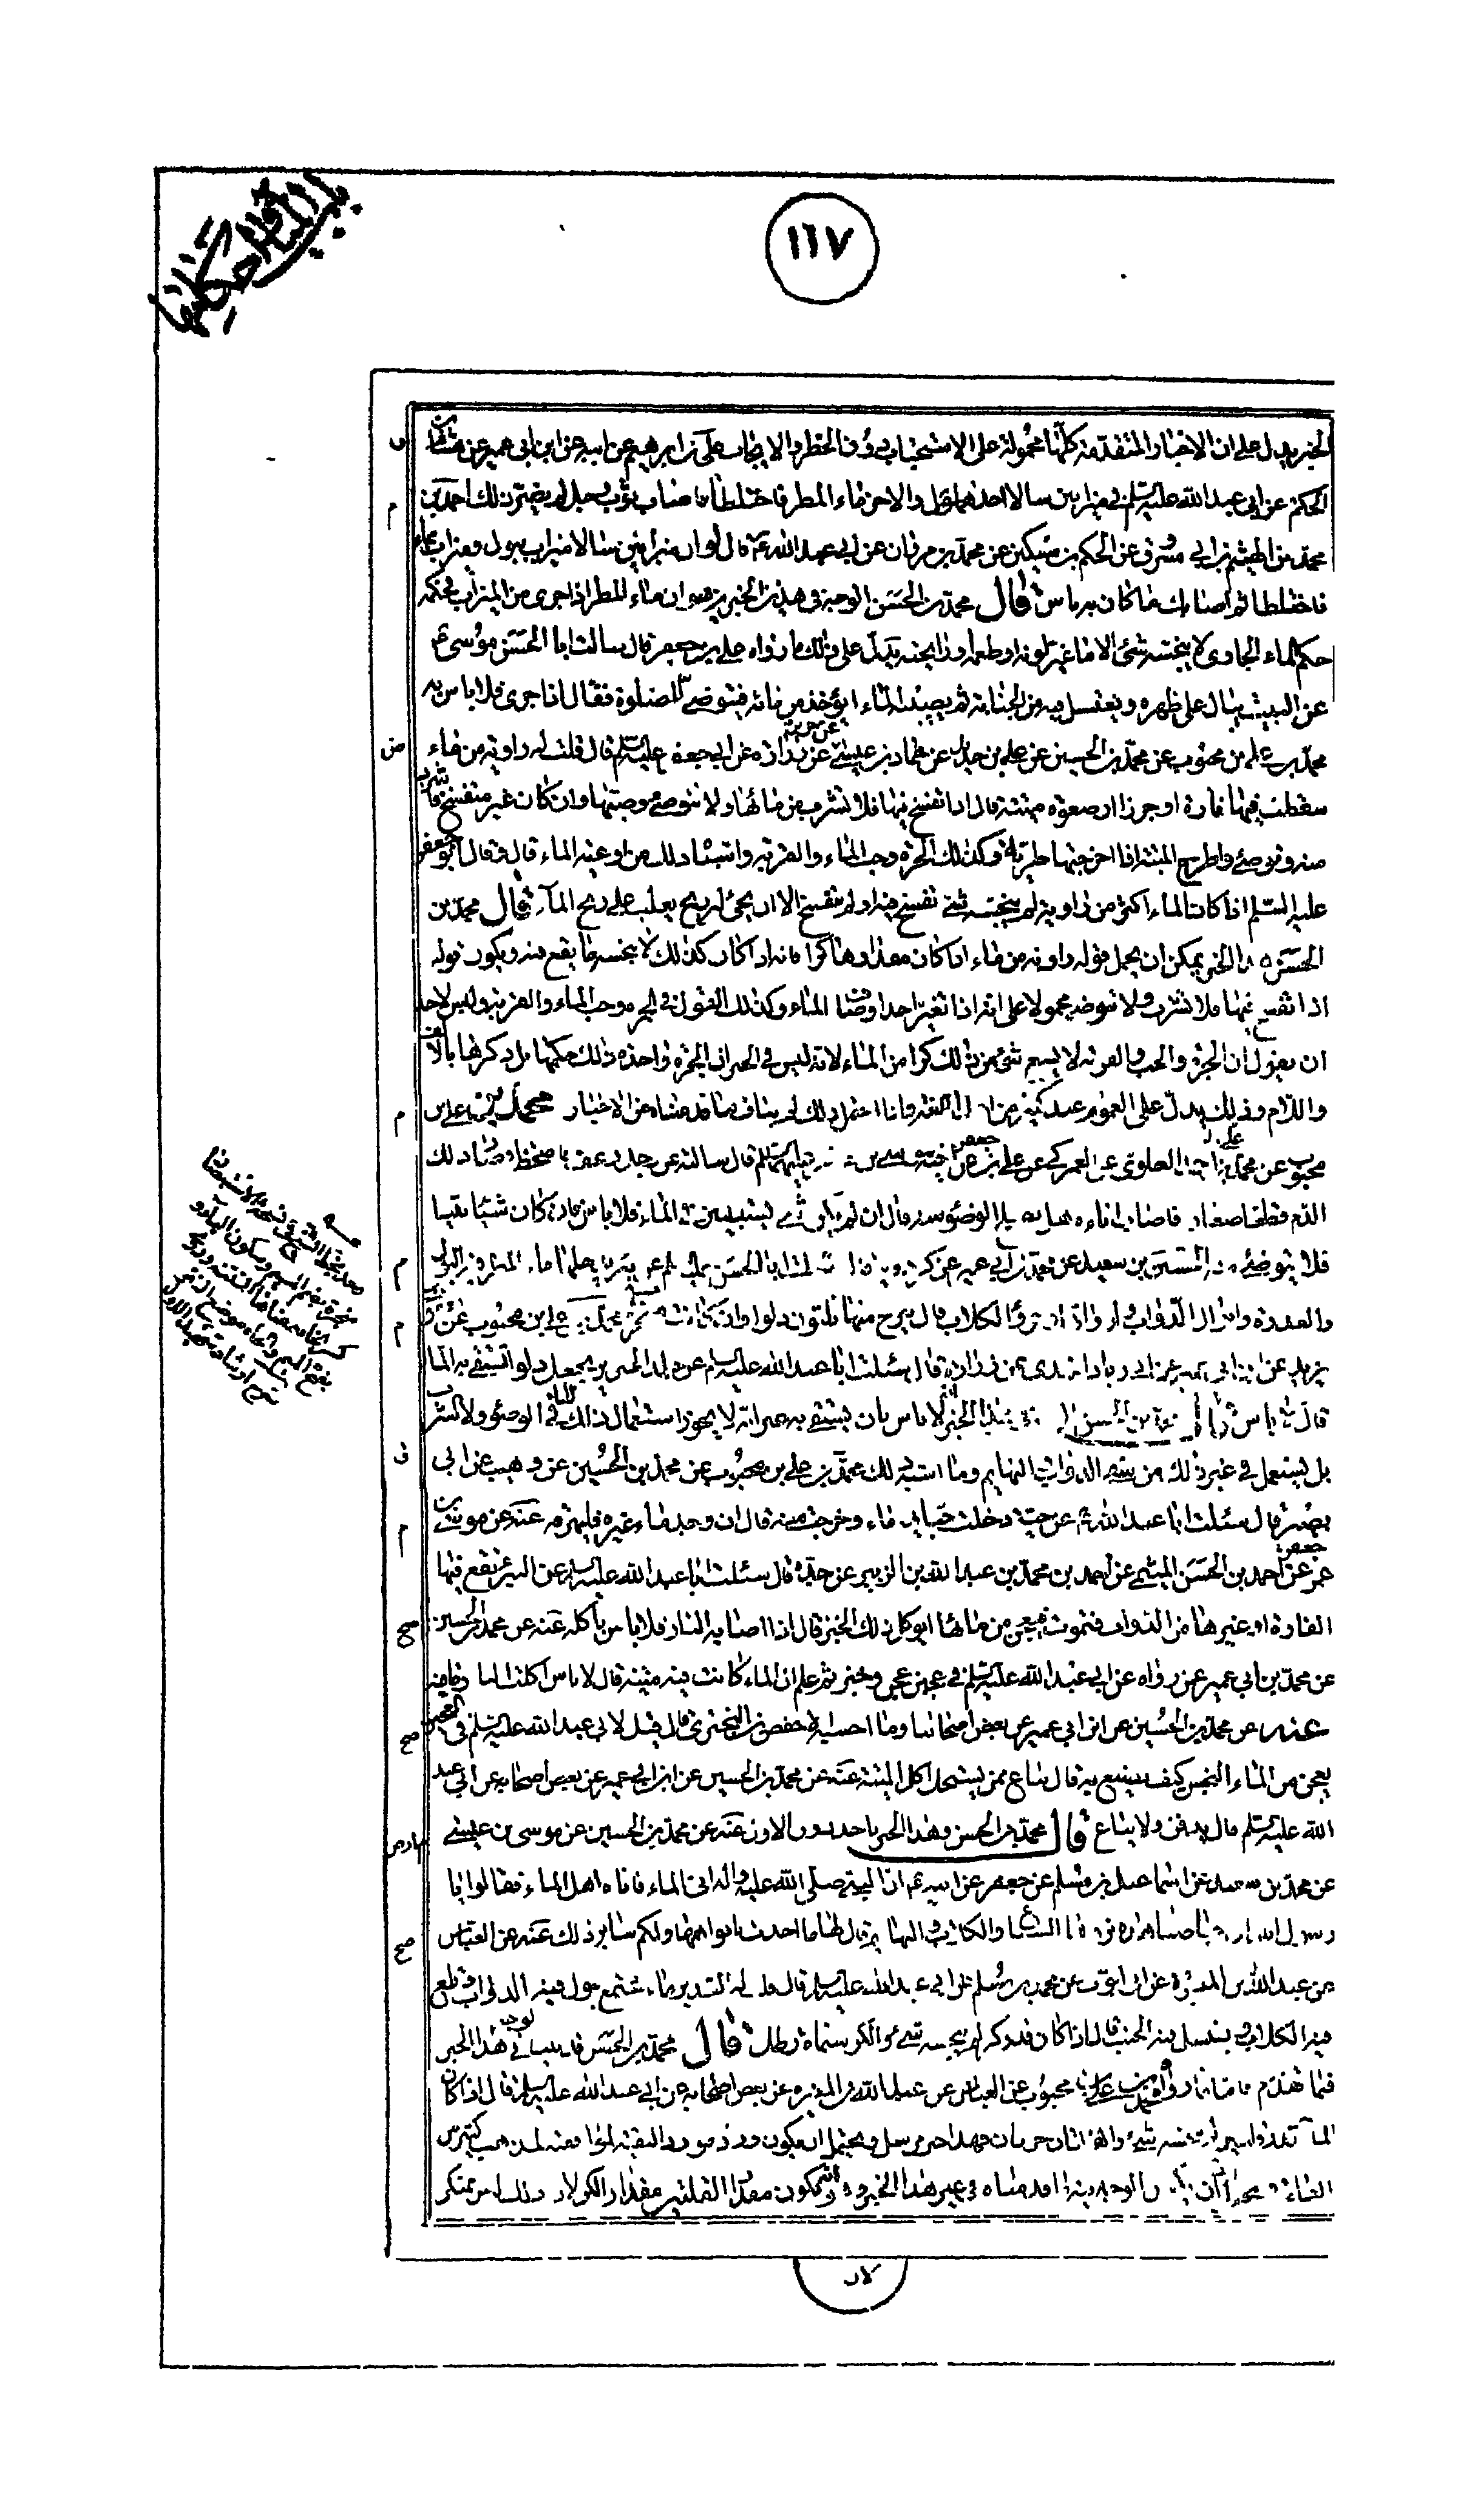 باب المياه واحكامها
١١٧
الخبر يدل على ان الاخبار المتقدمة كلها محمولة على الاستحباب دون الحظر والايجاب على بن ابراهيم عن ابيه عن ابن ابى عمير عن هشام بن
الحكم عن ابى عبد الله عليه السلم فى ميزابين سالا احدهما بول والاخر ماء المطر فاختلطا فاصاب ثوب رجل لم يضر ذلك احمد بن
محمد عن الهيثم بن ابى مسروق عن الحكم بن مسكين عن محمد بن مروان عن ابى عبد الله ع قال لوان ميزابين سالا ميزاب ببول وميزاب بماء
فاختلطا ثم اصابك ما كان به باس قال محمد بن الحسن الوجه فى هذين الخبرين هو ان ماء المطر اذا جرى من الميزاب فحكمه
حكم الماء الجارى لا ينجسه شئ الا ما غير لونه او طعمه او رايحته يدل على ذلك ما رواه على بن جعفر قال سالت ابا الحسن موسى ع
عن البيت يبال على ظهره ويغتسل فيه من الجنابة ثم يصيبه الماء ايؤخذ من مائه فيتوضى للصلوة فقال اذا جرى فلا باس به
محمد بن على بن محبوب عن محمد بن الحسين عن على بن حديد عن حماد بن عيسى عن حريز عن زرارة عن ابى جعفر عليه السلم قال قلت له راوية من ماء
سقطت فيها فارة او جرذ او صعوة ميتة قال اذا تفسخ فيها فلا تشرب من مائها ولا تتوضئ وصبها وان كان غير متفسخ فاشرب
منه وتوضئ واطرح الميتة اذا اخرجتها طرية وكذلك الجرة وحب الماء والقربة واشباه ذلك من اوعية الماء قال وقال ابو جعفر
عليه السلم اذا كان الماء اكثر من راوية لم ينجسه شئ تفسخ فيه او لم يتفسخ الا ان يجئ له ريح يغلب على ريح الماء قال محمد بن
الحسن هذا الخبر يمكن ان يحمل قوله راوية من ماء اذا كان مقدارها كرا فانه اذا كان كذلك لا ينجسه ما يقع فيه ويكون قوله
اذا تفسخ فيها فلا تشرب ولا تتوضأ محمولا على انه اذا تغير احد اوصاف الماء وكذلك القول فى الجرة وحب الماء والقربة وليس لاحد
ان يقول ان الجرة والحب والقربة لا يسع شئ من ذلك كرا من الماء لانه ليس فى الخبر ان الجرة واحدة ذلك حكمها بل ذكرها بالالف
واللام وذلك يدل على العموم عند كثير من اهل اللغة واذا احتمل ذلك لم يناف ما قدمناه من الاخبار محمد بن على بن
محبوب عن محمد بن احمد العلوى عن العمركى عن على بن جعفر عن اخيه موسى بن جعفر عليهما السلم قال سالته عن رجل رعف فامتخط فصار ذلك
الدم قطعا صغارا فاصاب اناءه هل يصلح الوضوء منه قال ان لم يكن شئ يستبين فى الماء فلا باس وان كان شيئا بينا
فلا يتوضئ منه الحسين بن سعيد عن محمد بن ابى عمير عن كردويه قال سالت ابا الحسن عليه السلم عن بئر يدخلها ماء المطر فيه البول
والعذرة وابوال الدواب وارواثها وخرؤ الكلاب قال ينزح منها ثلثون دلوا وان كانت مبخرة محمد بن على بن محبوب عن
يزيد عن ابن ابى عمير عن ابى زياد النهدى عن زرارة قال سئلت ابا عبد الله عليه السلم عن جلد الخنزير يجعل دلوا يستقى به الماء
قال لا باس قال محمد بن الحسن الوجه فى هذا الخبر انه لا باس بان يستقى به غير انه لا يجوز استعمال ذلك الماء فى الوضوء ولا الشرب
بل يستعمل فى غير ذلك من سقى الدواب والبهايم وما اشبه ذلك محمد بن على بن محبوب عن محمد بن الحسين عن وهيب عن ابى
بصير قال سئلت ابا عبد الله ع عن حية دخلت حبا فيه ماء وخرجت منه قال ان وجد ماء غيره فليهرقه عنه عن موسى بن
عمر عن احمد بن الحسن الميثمى عن احمد بن محمد بن عبد الله بن الزبير عن جده قال سئلت ابا عبد الله عليه السلم عن البئر تقع فيها
الفارة او غيرها من الدواب فتموت فيعجن من مائها ايؤكل ذلك الخبز قال اذا اصابته النار فلا باس باكله عنه عن محمد بن الحسين
عن محمد بن ابى عمير عن رواه عن ابى عبد الله عليه السلم فى عجين عجن وخبز ثم علم ان الماء كانت فيه ميتة قال لا باس اكلت النار ما فيه
عنه عن محمد بن الحسين عن ابن ابى عمير عن بعض اصحابنا وما احسبه الا حفص بن البخترى قال قيل لابى عبد الله عليه السلم فى العجين
يعجن من الماء النجس كيف يصنع به قال يباع ممن يستحل اكل الميتة عنه عن محمد بن الحسين عن ابن ابى عمير عن بعض اصحابه عن ابى عبد
الله عليه السلم قال يدفن ولا يباع قال محمد بن الحسن وبهذا الخبر ناخذ دون الاول عنه عن محمد بن الحسين عن موسى بن عيسى
عن محمد بن سعيد عن اسماعيل بن مسلم عن جعفر عن ابيه ع ان النبى صلى الله عليه واله اتى الماء فاتاه اهل الماء فقالوا يا
رسول الله ان حياضنا هذه تردها السباع والكلاب والبهايم قال لها ما اخذت بافواهها ولكم ساير ذلك عنه عن العباس
عن عبد الله بن المغيرة عن ابى ايوب عن محمد بن مسلم عن ابى عبد الله عليه السلم قال قلت له الغدير ماء مجتمع تبول فيه الدواب وتلغ
فيه الكلاب ويغتسل فيه الجنب قال اذا كان قدر كر لم ينجسه شئ والكر ستماة رطل قال محمد بن الحسن قد بينا الوجه فى هذا الخبر
فيما تقدم فاما ما رواه محمد بن على بن محبوب عن العباس عن عبد الله بن المغيرة عن بعض اصحابه عن ابى عبد الله عليه السلم قال اذا كان
الماء قدر قلتين لم ينجسه شئ والقلتان جرتان فهذا خبر مرسل ويحتمل ان يكون ورد مورد التقية لموافقته لمذهب كثير من
العامة ويحتمل ان يكون الوجه فيه ما قدمناه فى غير هذا الخبر وهو ان يكون مقدار القلتين مقدار الكر لان ذلك ليس بمنكر
لان